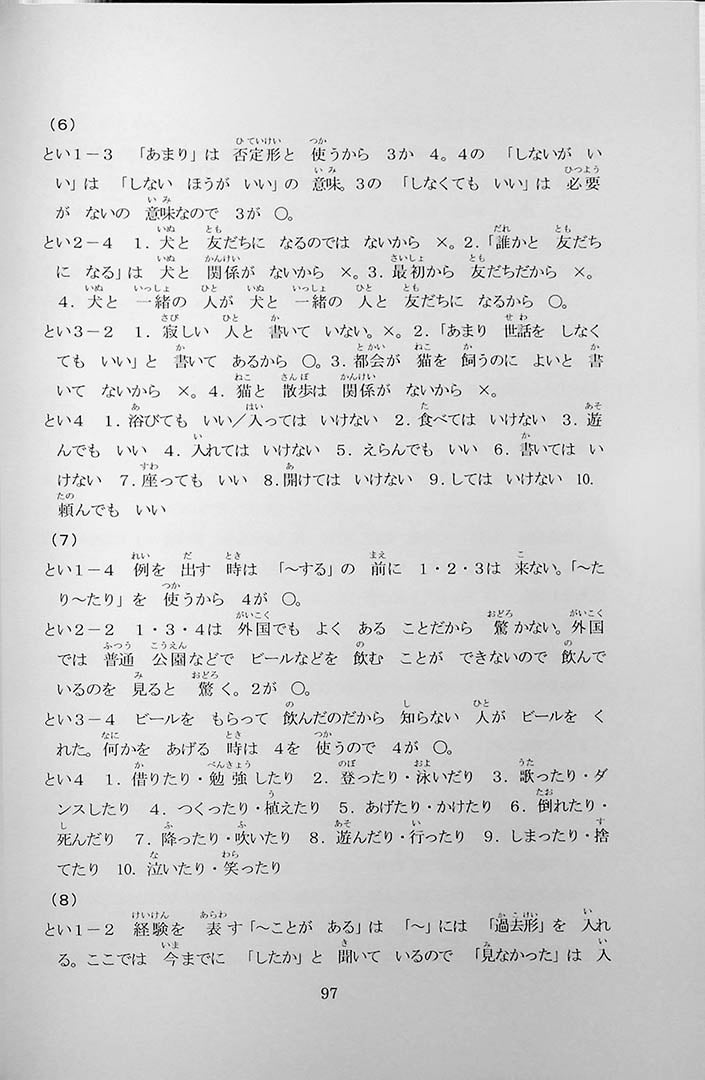 (6)
とい1－3　「あまり」は 否定形と 使うから 3か 4。4の 「しないが い
い」は 「しない ほうが いい」の 意味。3の 「しなくても いい」は 必要
が ないの 意味なので 3が ○。
とい2－4　1．犬と 友だちに なるのでは ないから ×。2．「誰かと 友だち
に なる」は 犬と 関係が ないから ×。3．最初から 友だちだから ×。
4．犬と 一緒の 人が 犬と 一緒の 人と 友だちに なるから ○。
とい3－2　1．寂しい 人と 書いて いない。×。2．「あまり 世話を しなく
ても いい」と 書いて あるから ○。3．都会が 猫を 飼うのに よいと 書
いて ないから ×。4．猫と 散歩は 関係が ないから ×。
とい4　1．浴びても いい／入っては いけない 2．食べては いけない 3．遊
んでも いい 4．入れては いけない 5．えらんでも いい 6．書いては い
けない 7．座っても いい 8．開けては いけない 9．しては いけない 10．
頼んでも いい
(7)
とい1－4　例を 出す 時は 「～する」の 前に 1・2・3は 来ない。「～た
り～たり」を 使うから 4が ○。
とい2－2　1・3・4は 外国でも よく ある ことだから 驚かない。外国
では 普通 公園などで ビールなどを 飲む ことが できないので 飲んで
いるのを 見ると 驚く。2が ○。
とい3－4　ビールを もらって 飲んだのだから 知らない 人が ビールを く
れた。何かを あげる 時は 4を 使うので 4が ○。
とい4　1．借りたり・勉強したり 2．登ったり・泳いだり 3．歌ったり・ダ
ンスしたり 4．つくったり・植えたり 5．あげたり・かけたり 6．倒れたり・
死んだり 7．降ったり・吹いたり 8．遊んだり・行ったり 9．しまったり・捨
てたり 10．泣いたり・笑ったり
(8)
とい1－2　経験を 表す「～ことが ある」は 「～」には 「過去形」を 入れ
る。ここでは 今までに 「したか」と 聞いて いるので 「見なかった」は 入
97